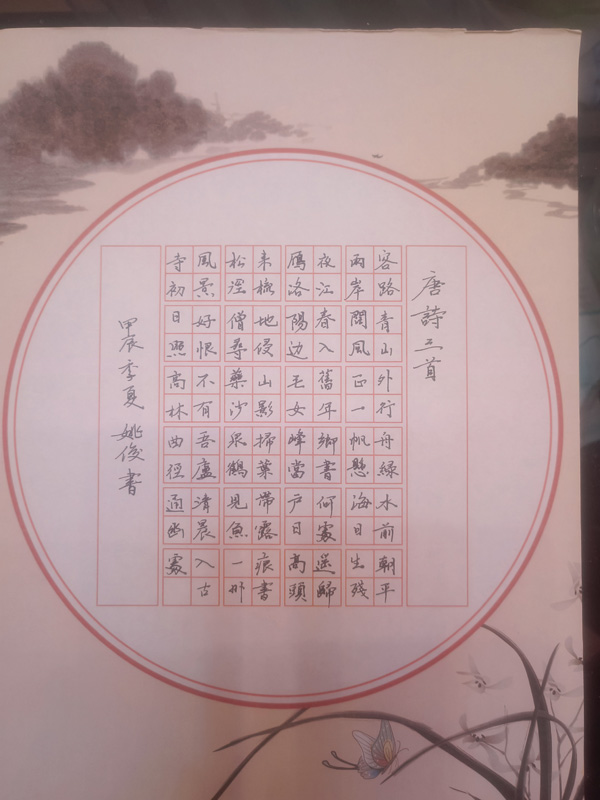 唐詩三首
客路青山外行舟緑水前朝平
兩岸闊風正一帆懸海日生殘
夜江春入舊年鄉書何處送歸
鴈洛陽边毛女峰當户日高頭
未梳地侵山影掃葉帶露痕書
松逕僧尋藥沙泉鶴見魚一川
風景好恨不有吾廬清晨入古
寺初日照高林曲徑通幽處
甲辰季夏 姚俊書